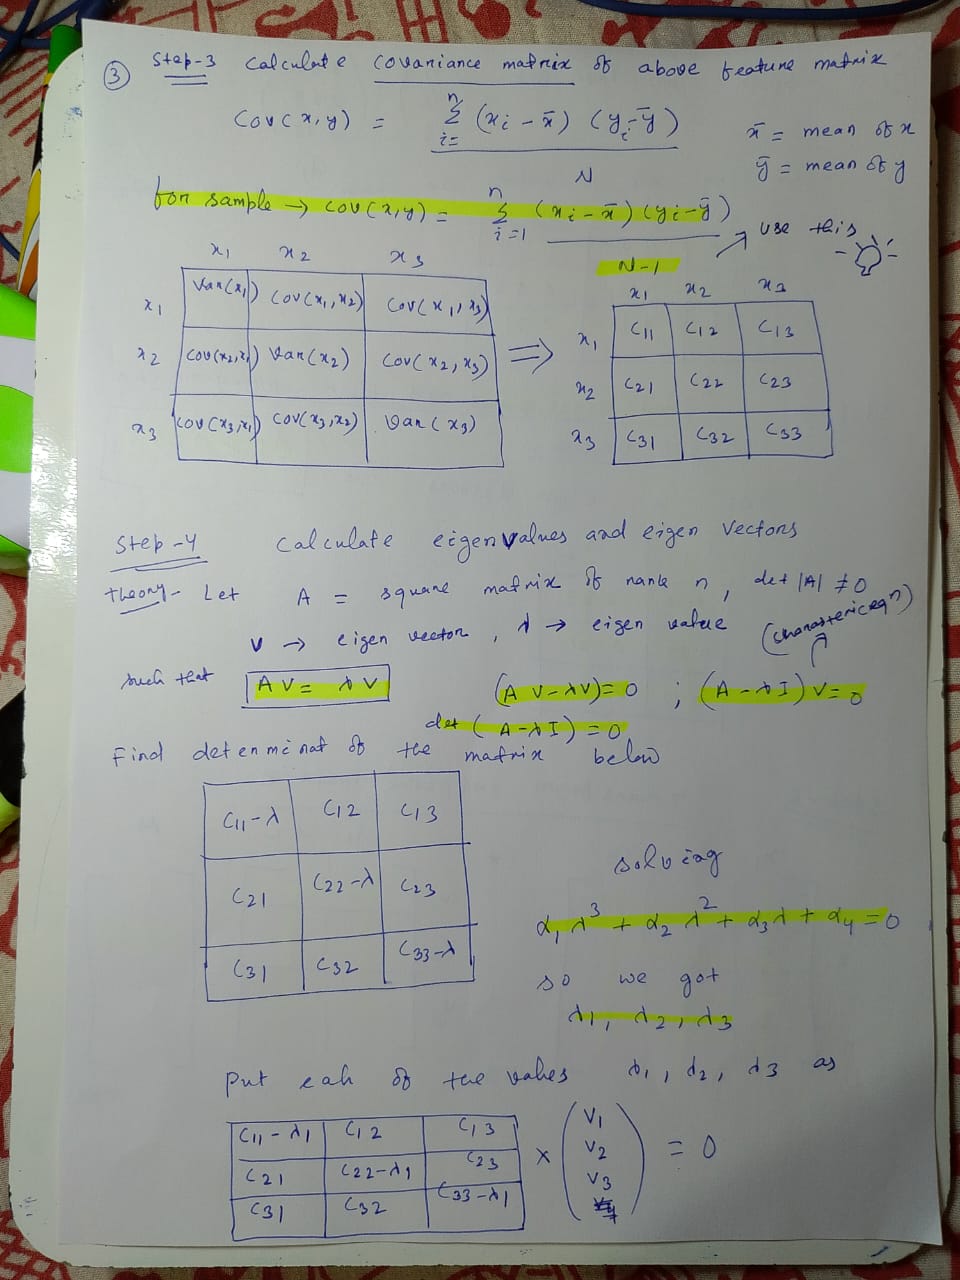 ③ Step-3 Calculate covariance matrix of above feature matrix
Cov(x,y) = n Σ i= (xi - x̄) (yi - ȳ) / N
x̄ = mean of x
ȳ = mean of y
for sample → cov(x,y) = n Σ i=1 (xi - x̄) (yi - ȳ) / N-1
use this
x1 x2 x3
x1 Var(x1) Cov(x1,x2) Cov(x1,x3)
x2 Cov(x2,x1) Var(x2) Cov(x2,x3)
x3 Cov(x3,x1) Cov(x3,x2) Var(x3)
⇒
x1 x2 x3
x1 C11 C12 C13
x2 C21 C22 C23
x3 C31 C32 C33
Step-4 Calculate eigenvalues and eigen vectors
theory- Let A = square matrix of rank n, det |A| ≠ 0
v → eigen vector, λ → eigen value
such that AV = λV (AV-λV) = 0 ; (A-λI)V = 0
det (A-λI) = 0
Find determinat of the matrix below
C11-λ C12 C13
C21 C22-λ C23
C31 C32 C33-λ
solving
α1λ³ + α2λ² + α3λ + α4 = 0
so we got
λ1, λ2, λ3
Put eah of the values λ1, λ2, λ3 as
C11-λ1 C12 C13
C21 C22-λ1 C23
C31 C32 C33-λ1
×
V1
V2
V3
= 0